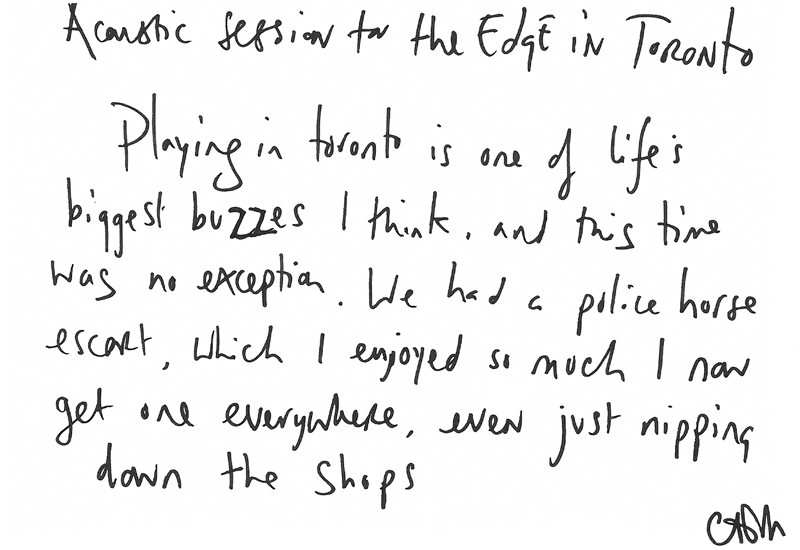 Acoustic session for the Edge in Toronto
Playing in toronto is one of life's
biggest buzzes I think, and this time
was no exception. We had a police horse
escort, which I enjoyed so much I now
get one everywhere, even just nipping
down the shops